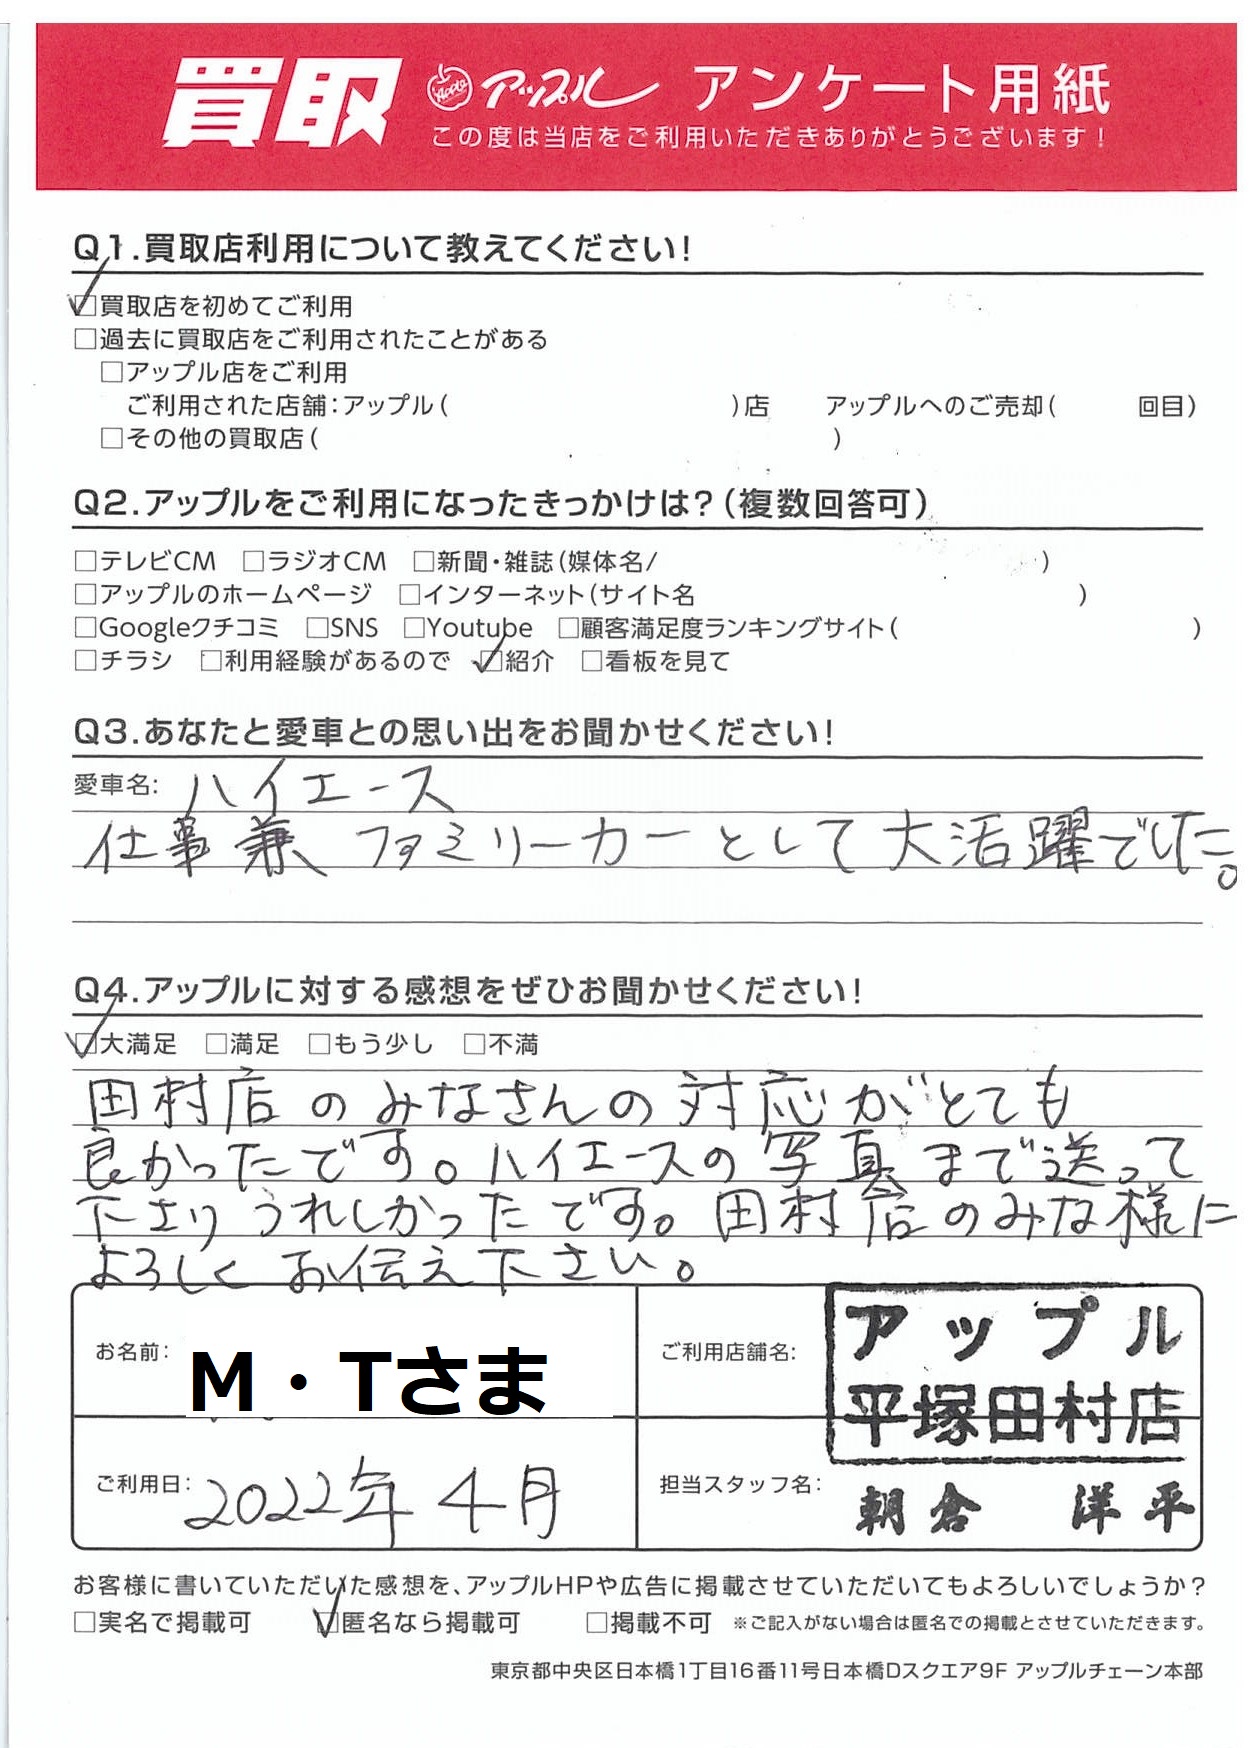 買取 Apple アップル アンケート用紙
この度は当店をご利用いただきありがとうございます!
Q1.買取店利用について教えてください!
☑買取店を初めてご利用
□過去に買取店をご利用されたことがある
□アップル店をご利用
ご利用された店舗:アップル( )店 アップルへのご売却( 回目)
□その他の買取店( )
Q2.アップルをご利用になったきっかけは?(複数回答可)
□テレビCM □ラジオCM □新聞・雑誌(媒体名/ )
□アップルのホームページ □インターネット(サイト名 )
□Googleクチコミ □SNS □Youtube □顧客満足度ランキングサイト( )
□チラシ □利用経験があるので ☑紹介 □看板を見て
Q3.あなたと愛車との思い出をお聞かせください!
愛車名: ハイエース
仕事兼ファミリーカーとして大活躍でした。
Q4.アップルに対する感想をぜひお聞かせください!
☑大満足 □満足 □もう少し □不満
田村店のみなさんの対応がとても
良かったです。ハイエースの写真まで送って
下さりうれしかったです。田村店のみな様に
よろしくお伝え下さい。
お名前: M・Tさま
ご利用店舗名: アップル
平塚田村店
ご利用日: 2022年4月
担当スタッフ名: 朝倉 洋平
お客様に書いていただいた感想を、アップルHPや広告に掲載させていただいてもよろしいでしょうか?
□実名で掲載可 ☑匿名なら掲載可 □掲載不可 ※ご記入がない場合は匿名での掲載とさせていただきます。
東京都中央区日本橋1丁目16番11号日本橋Dスクエア9F アップルチェーン本部